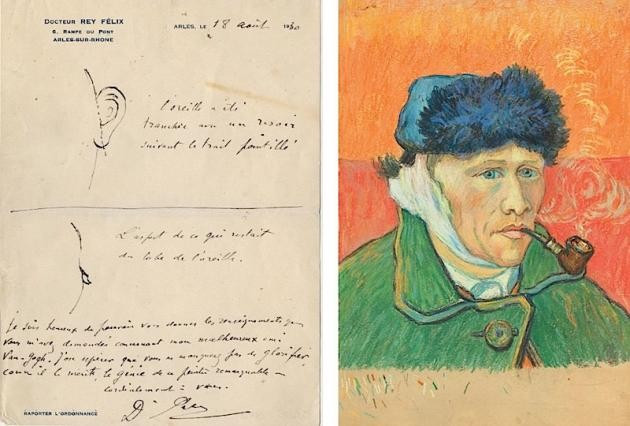 DOCTEUR REY FÉLIX
6, RAMPE DU PONT
ARLES-SUR-RHONE
ARLES, LE 18 août 1930
l'oreille a été
tranchée avec un rasoir
suivant le trait pointillé
L'aspect de ce qui restait
du lobe de l'oreille.
Je suis heureux de pouvoir vous donner les renseignements que
vous m'avez demandés concernant mon malheureux ami
Van-Gogh. J'ose espérer que vous ne manquerez pas de glorifier
comme il le mérite le génie de ce peintre remarquable
cordialement à vous.
Dr Rey
RAPORTER L'ORDONNANCE